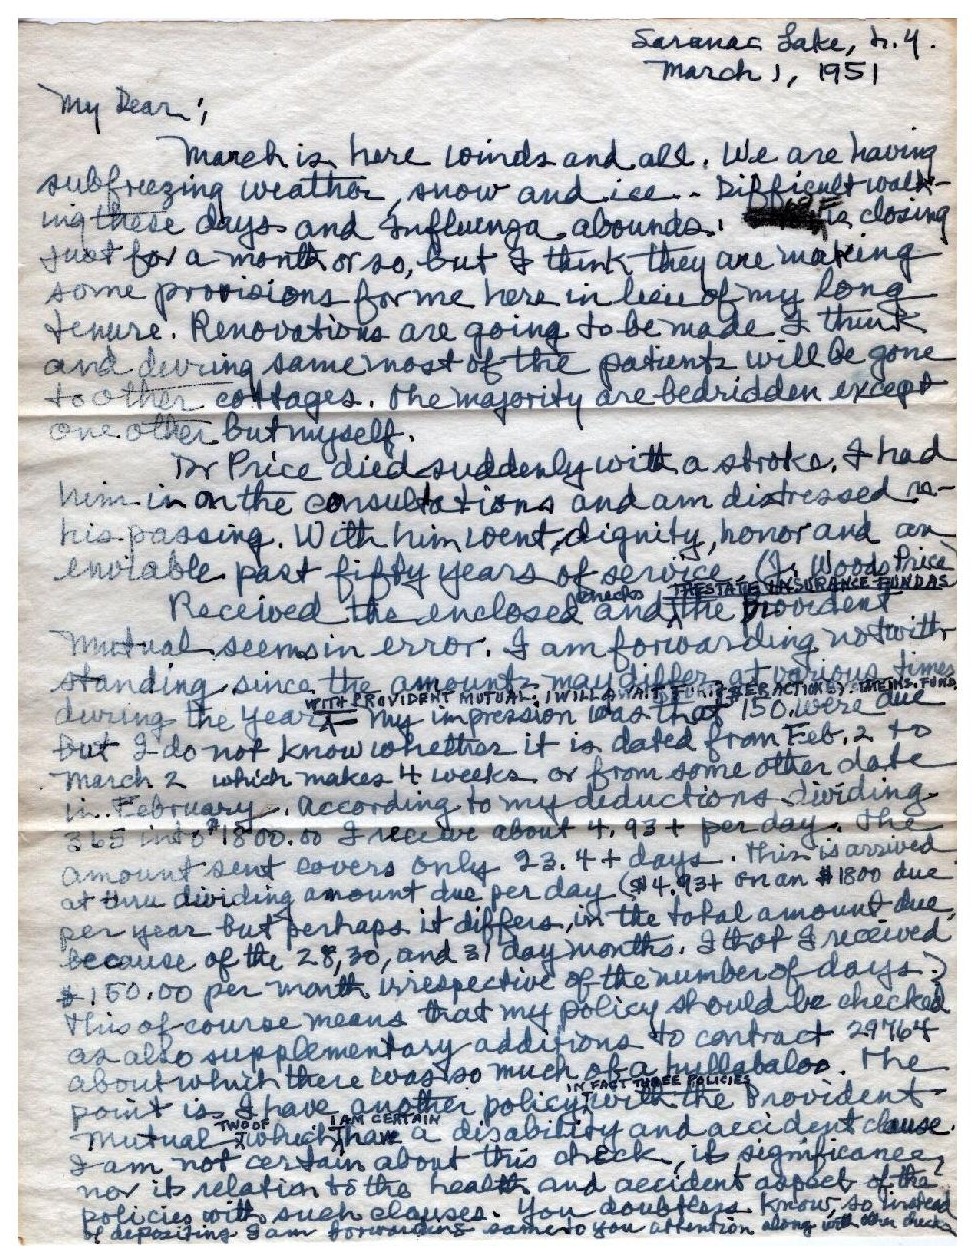 Saranac Lake, N.Y.
March 1, 1951
My Dear;
March is here winds and all. We are having
subfreezing weather, snow and ice.. Difficult walk-
ing these days and Influenza abounds. is closing
just for a month or so, but I think they are making
some provisions for me here in lieu of my long
tenure. Renovations are going to be made I think
and during same most of the patients will be gone
to other cottages. The majority are bedridden except
one other but myself.
Dr Price died suddenly with a stroke. I had
him in on the consultations and am distressed
his passing. With him went, dignity, honor and an
enviable past fifty years of service. (J. Woods Price)
checks THE STATE INSURANCE FUND AS
Received the enclosed and the Provident
Mutual seems in error. I am forwarding notwith
standing since the amounts may differ at various times
WITH PROVIDENT MUTUAL. I WILL AWAIT FURTHER ACTION THE INS. FUND
during the year. My impression was that 150. were due
but I do not know whether it is dated from Feb. 2 to
March 2 which makes 4 weeks or from some other date
in February. According to my deductions dividing
365 into $1800.00 I receive about 4.93+ per day. The
amount sent covers only 23.4+ days. This is arrived
at thru dividing amount due per day ($4.93+ on an $1800 due
per year but perhaps it differs, in the total amount due,
because of the 28, 30, and 31 day months. I thot I received
$150.00 per month irrespective of the number of days.)
This of course means that my policy should be checked
as also supplementary additions to contract 29764
about which there was so much of a hullabaloo. The
IN FACT THREE POLICIES
point is I have another policy with the Provident
TWO OF I AM CERTAIN
Mutual which have a disability and accident clause.
I am not certain about this check, its significance,
nor its relation to the health and accident aspect of the
policies with such clauses. You doubtless know, so instead
of depositing I am forwarding same to you attention along with other checks